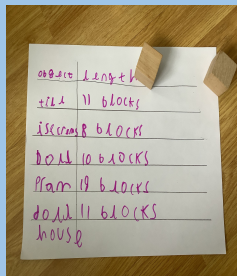 object length
tile 11 blocks
isecreas 8 blocks
Doll 10 blocks
Pram 19 blocks
doll 11 blocks
house